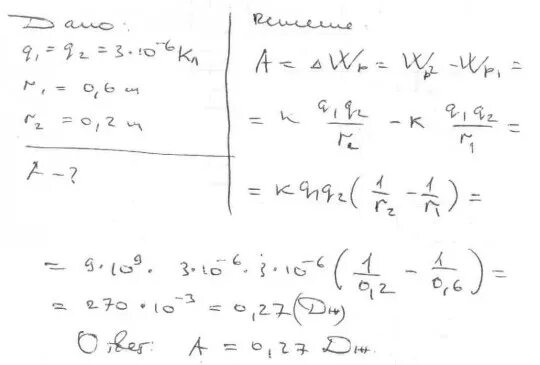 Дано:
q₁ = q₂ = 3·10⁻⁶ Кл
r₁ = 0,6 м
r₂ = 0,2 м
A - ?
Решение:
A = ΔWp = Wp2 - Wp1 =
= k q₁q₂/r₂ - k q₁q₂/r₁ =
= k q₁q₂ (1/r₂ - 1/r₁) =
= 9·10⁹ · 3·10⁻⁶ · 3·10⁻⁶ (1/0,2 - 1/0,6) =
= 270·10⁻³ = 0,27 (Дж)
Ответ: A = 0,27 Дж.